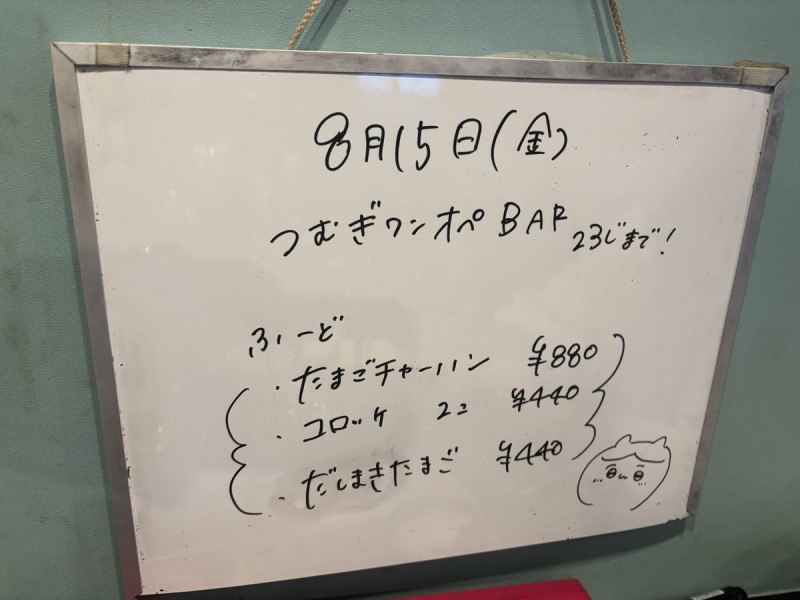 8月15日(金)
つむぎワンオペBAR 23じまで!
ふーど
・たまごチャーハン ¥880
・コロッケ 2コ ¥440
・だしまきたまご ¥440